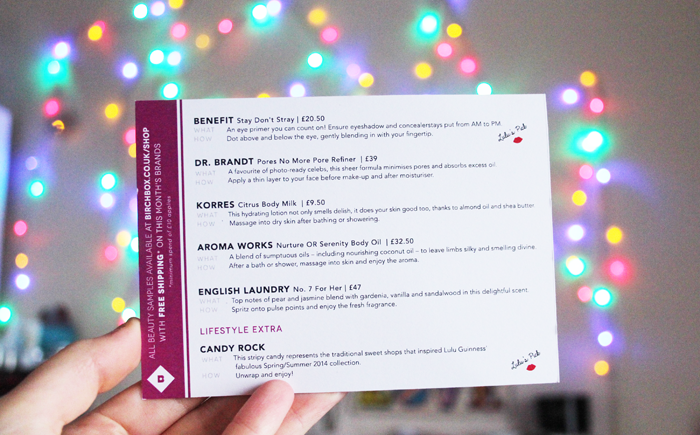 ALL BEAUTY SAMPLES AVAILABLE AT BIRCHBOX.CO.UK/SHOP
WITH FREE SHIPPING* ON THIS MONTH'S BRANDS
*minimum spend of £10 applies
BENEFIT Stay Don't Stray | £20.50
WHAT An eye primer you can count on! Ensure eyeshadow and concealerstays put from AM to PM.
HOW Dot above and below the eye, gently blending in with your fingertip.
Lulu's Pick
DR. BRANDT Pores No More Pore Refiner | £39
WHAT A favourite of photo-ready celebs, this sheer formula minimises pores and absorbs excess oil.
HOW Apply a thin layer to your face before make-up and after moisturiser.
KORRES Citrus Body Milk | £9.50
WHAT This hydrating lotion not only smells delish, it does your skin good too, thanks to almond oil and shea butter.
HOW Massage into dry skin after bathing or showering.
AROMA WORKS Nurture OR Serenity Body Oil | £32.50
WHAT A blend of sumptuous oils – including nourishing coconut oil – to leave limbs silky and smelling divine.
HOW After a bath or shower, massage into skin and enjoy the aroma.
ENGLISH LAUNDRY No. 7 For Her | £47
WHAT Top notes of pear and jasmine blend with gardenia, vanilla and sandalwood in this delightful scent.
HOW Spritz onto pulse points and enjoy the fresh fragrance.
LIFESTYLE EXTRA
CANDY ROCK
WHAT This stripy candy represents the traditional sweet shops that inspired Lulu Guinness'
fabulous Spring/Summer 2014 collection.
HOW Unwrap and enjoy!
Lulu's Pick